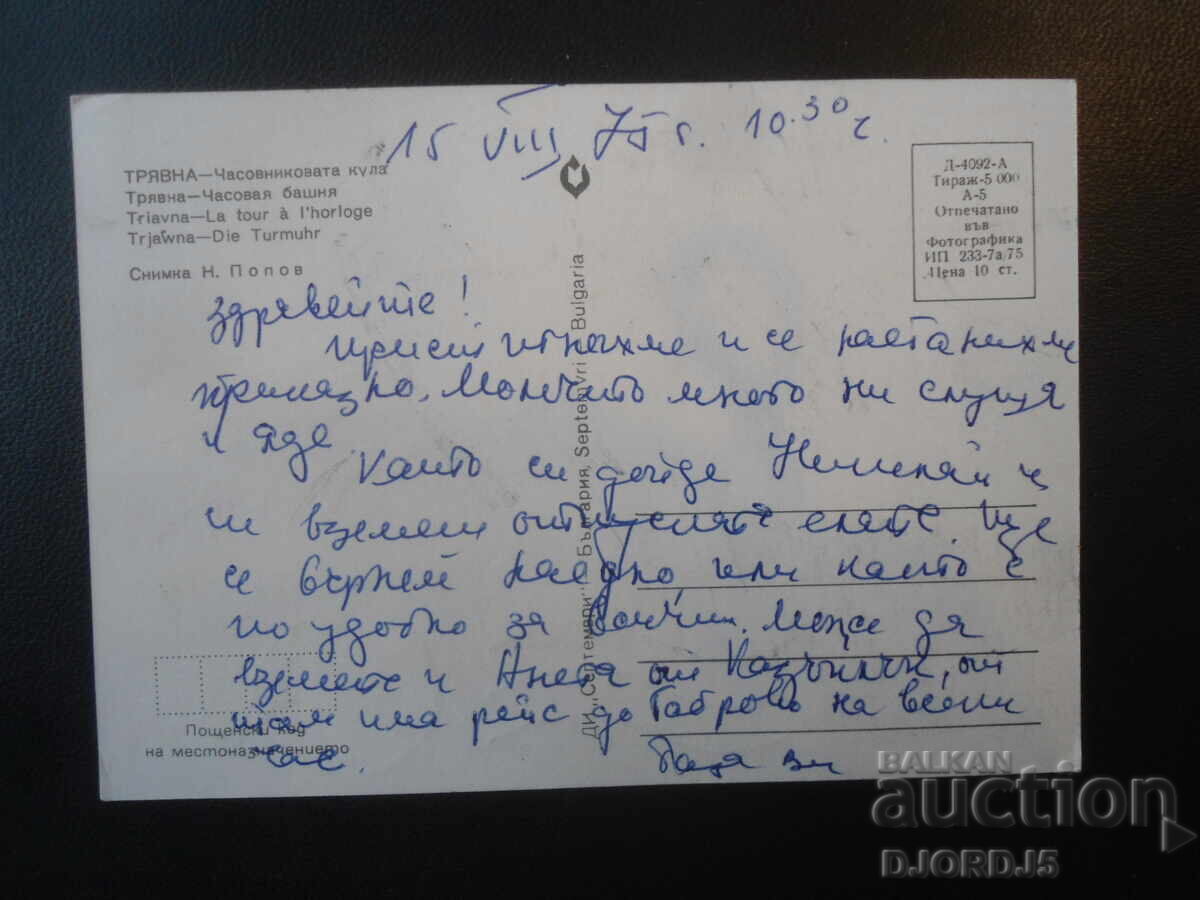 15 VIII 75 г. 10.30 ч.
ТРЯВНА—Часовниковата кула
Трявна—Часовая башня
Triavna—La tour à l'horloge
Trjawna—Die Turmuhr
Снимка Н. Попов
Д-4092-А
Тираж-5 000
А-5
Отпечатано
във
Фотографика
ИП 233-7а/75
Цена 10 ст.
ДИ „Септември" България, Septemvri Bulgaria
Здравейте!
Пристигнахме и се настанихме
прилично. Момчето много ни слуша
и яде.
Когато си дойде
ги вземеш елате. Ще
се върнем заедно, или както е
по удобно за всички. Може да
вземете и Анета от Казънлък, от
там има рейс до Габрово на всеки
час. Ваш
Пощенски код
на местоназначението
BALKAN
auction
DJORDJ5